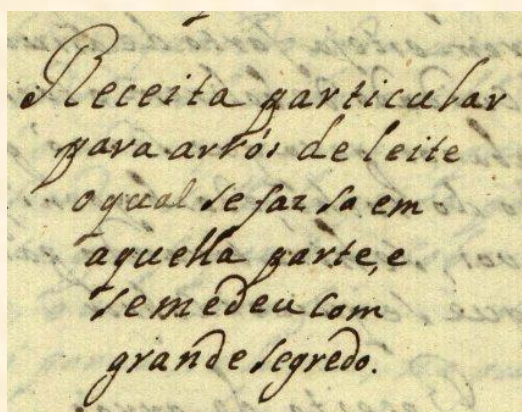 Receita particular
para arrós de leite
o qual se faz sa em
aquella parte, e
se me deu com
grande segredo.